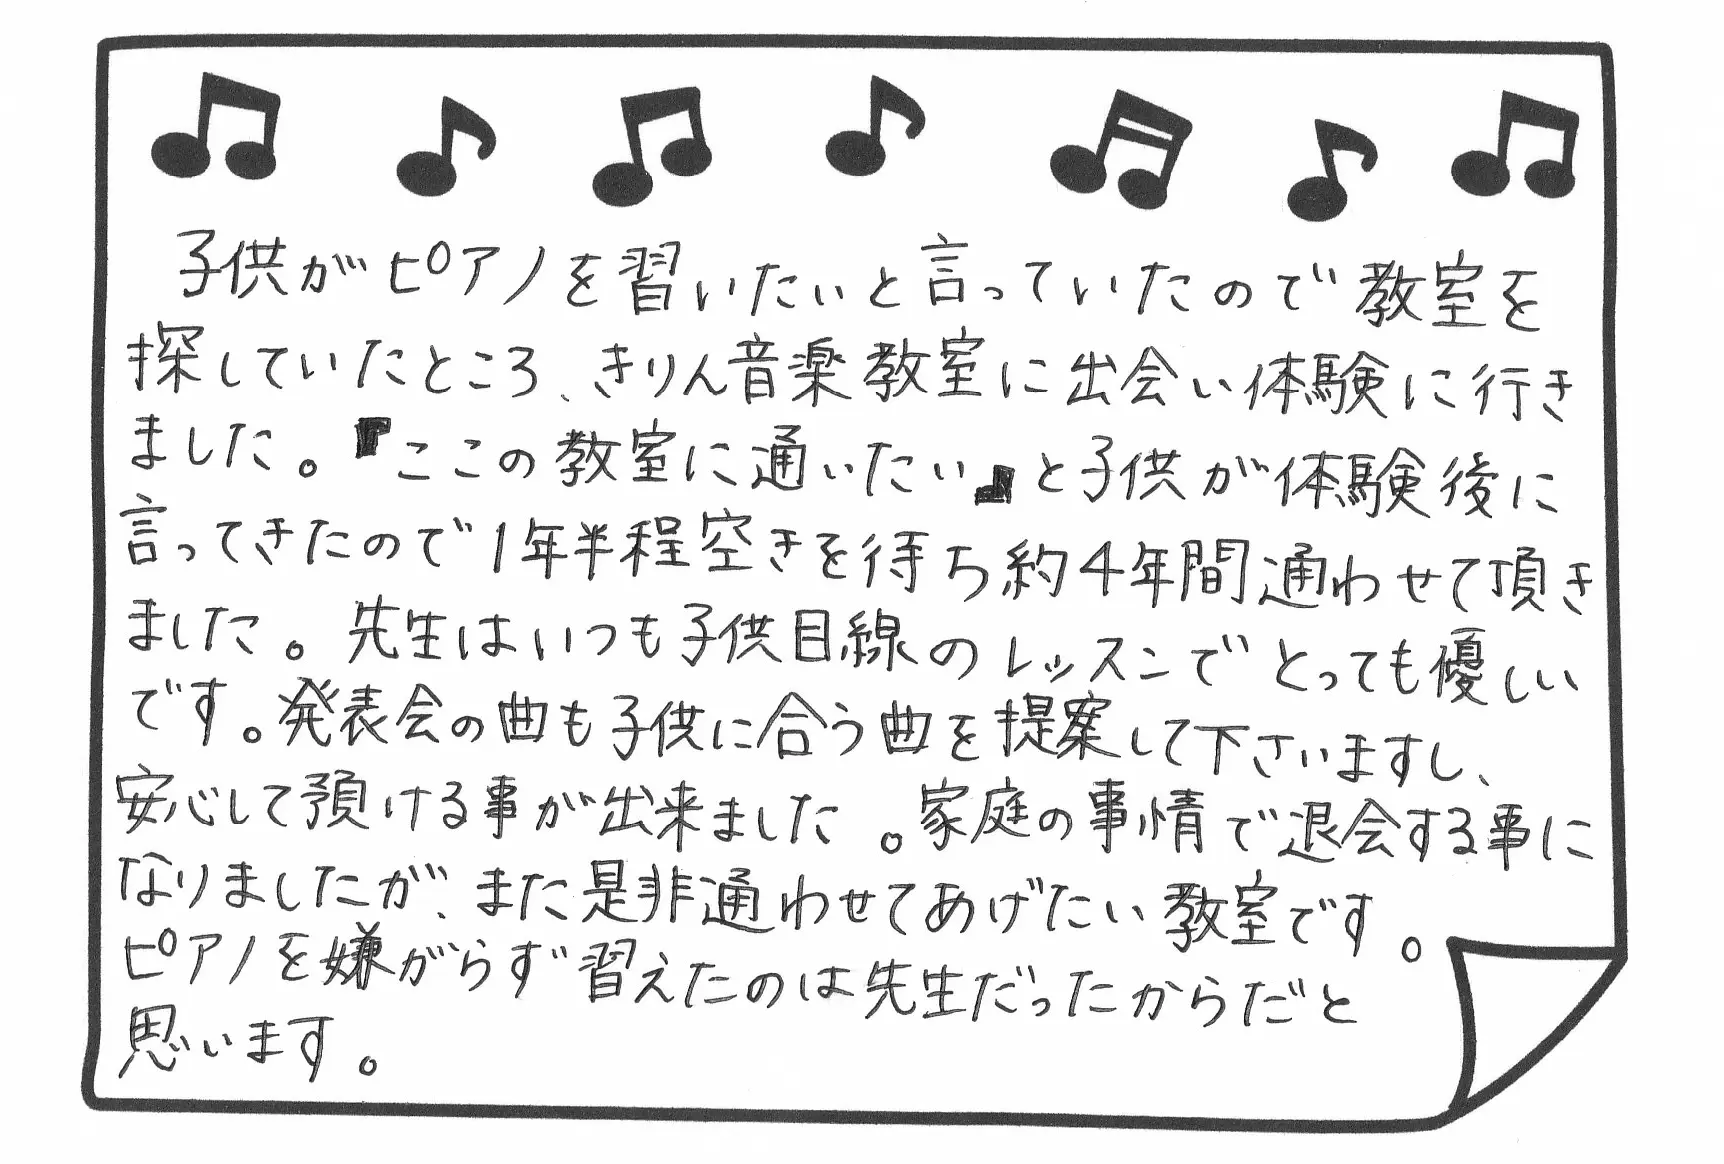 子供がピアノを習いたいと言っていたので教室を
探していたところ、きりん音楽教室に出会い体験に行き
ました。『ここの教室に通いたい』と子供が体験後に
言ってきたので1年半程空きを待ち約4年間通わせて頂き
ました。先生はいつも子供目線のレッスンでとっても優しい
です。発表会の曲も子供に合う曲を提案して下さいますし、
安心して預ける事が出来ました。家庭の事情で退会する事に
なりましたが、また是非通わせてあげたい教室です。
ピアノを嫌がらず習えたのは先生だったからだと
思います。